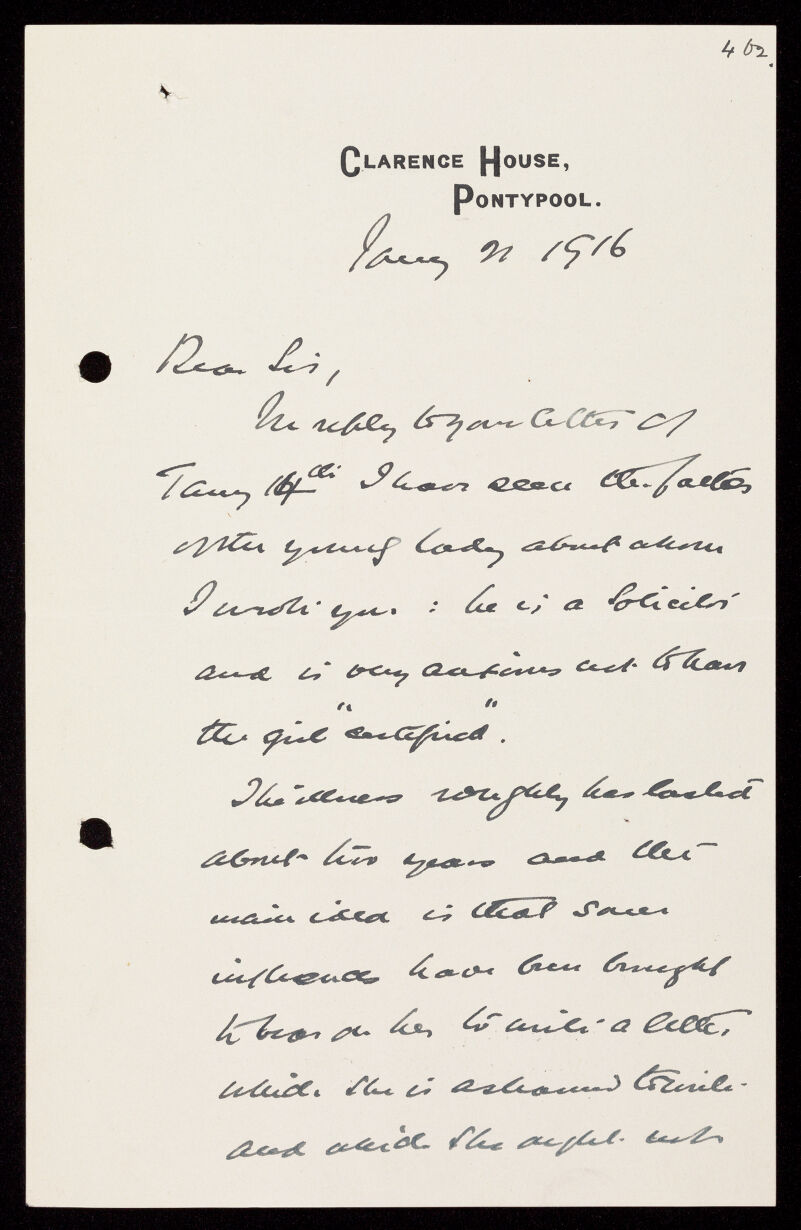 462.
CLARENCE HOUSE,
PONTYPOOL.
Jany 21 1916
Dear Sir,
In reply to your letter of
Jany 14th I have seen the father
of the young lady about whom
I wrote you : he is a Solicitor
and is very anxious not to have
the girl "certified".
The illness roughly has lasted
about two years and the
main idea is that some
influences have been brought
to bear on her to write a letter
which she is ashamed to write
and which she ought not